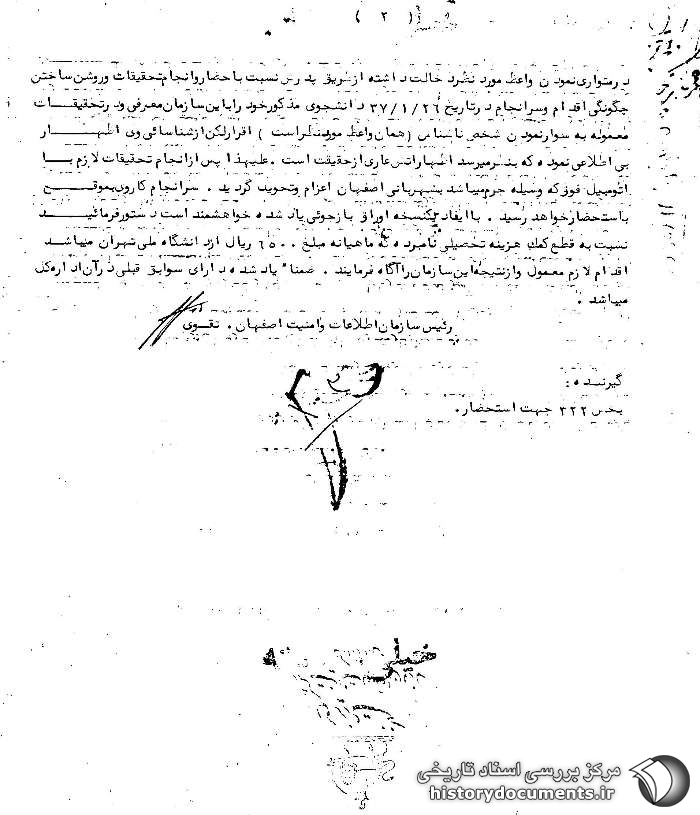 ( ٢ )
در متواری نمودن واعظ مورد نظر دخالت داشته از طریق پدرش نسبت باحضار و انجام تحقیقات و روشن ساختن
چگونگی اقدام و سرانجام در تاریخ ٣٧/١/٢٦ دانشجوی مذکور خود را باین سازمان معرفی و در تحقیقات
معموله به سوار نمودن شخص ناشناس ( همان واعظ مورد نظر است ) اقرار لکن از شناسائی وی اظهار
بی اطلاعی نموده که بنظر میرسد اظهاراتش عاری از حقیقت است . علیهذا پس از انجام تحقیقات لازم با
اتومبیل فوق که وسیله جرم میباشد بشهربانی اصفهان اعزام و تحویل گردید . سرانجام کار وی بموقع
باستحضار خواهد رسید . با ایفاد یکنسخه اوراق بازجوئی یاد شده خواهشمند است دستور فرمائید
نسبت به قطع کمک هزینه تحصیلی نامبرده که ماهیانه مبلغ ٦٥٠٠ ریال از دانشگاه ملی تهران میباشد
اقدام لازم معمول و از نتیجه این سازمان را آگاه فرمایند . ضمناً یاد شده دارای سوابق قبلی در آن اداره کل
میباشد .
رئیس سازمان اطلاعات و امنیت اصفهان . تقوی
گیرنده :
بخش ٣٢٢ جهت استحضار .
مرکز بررسی اسناد تاریخی
historydocuments.ir